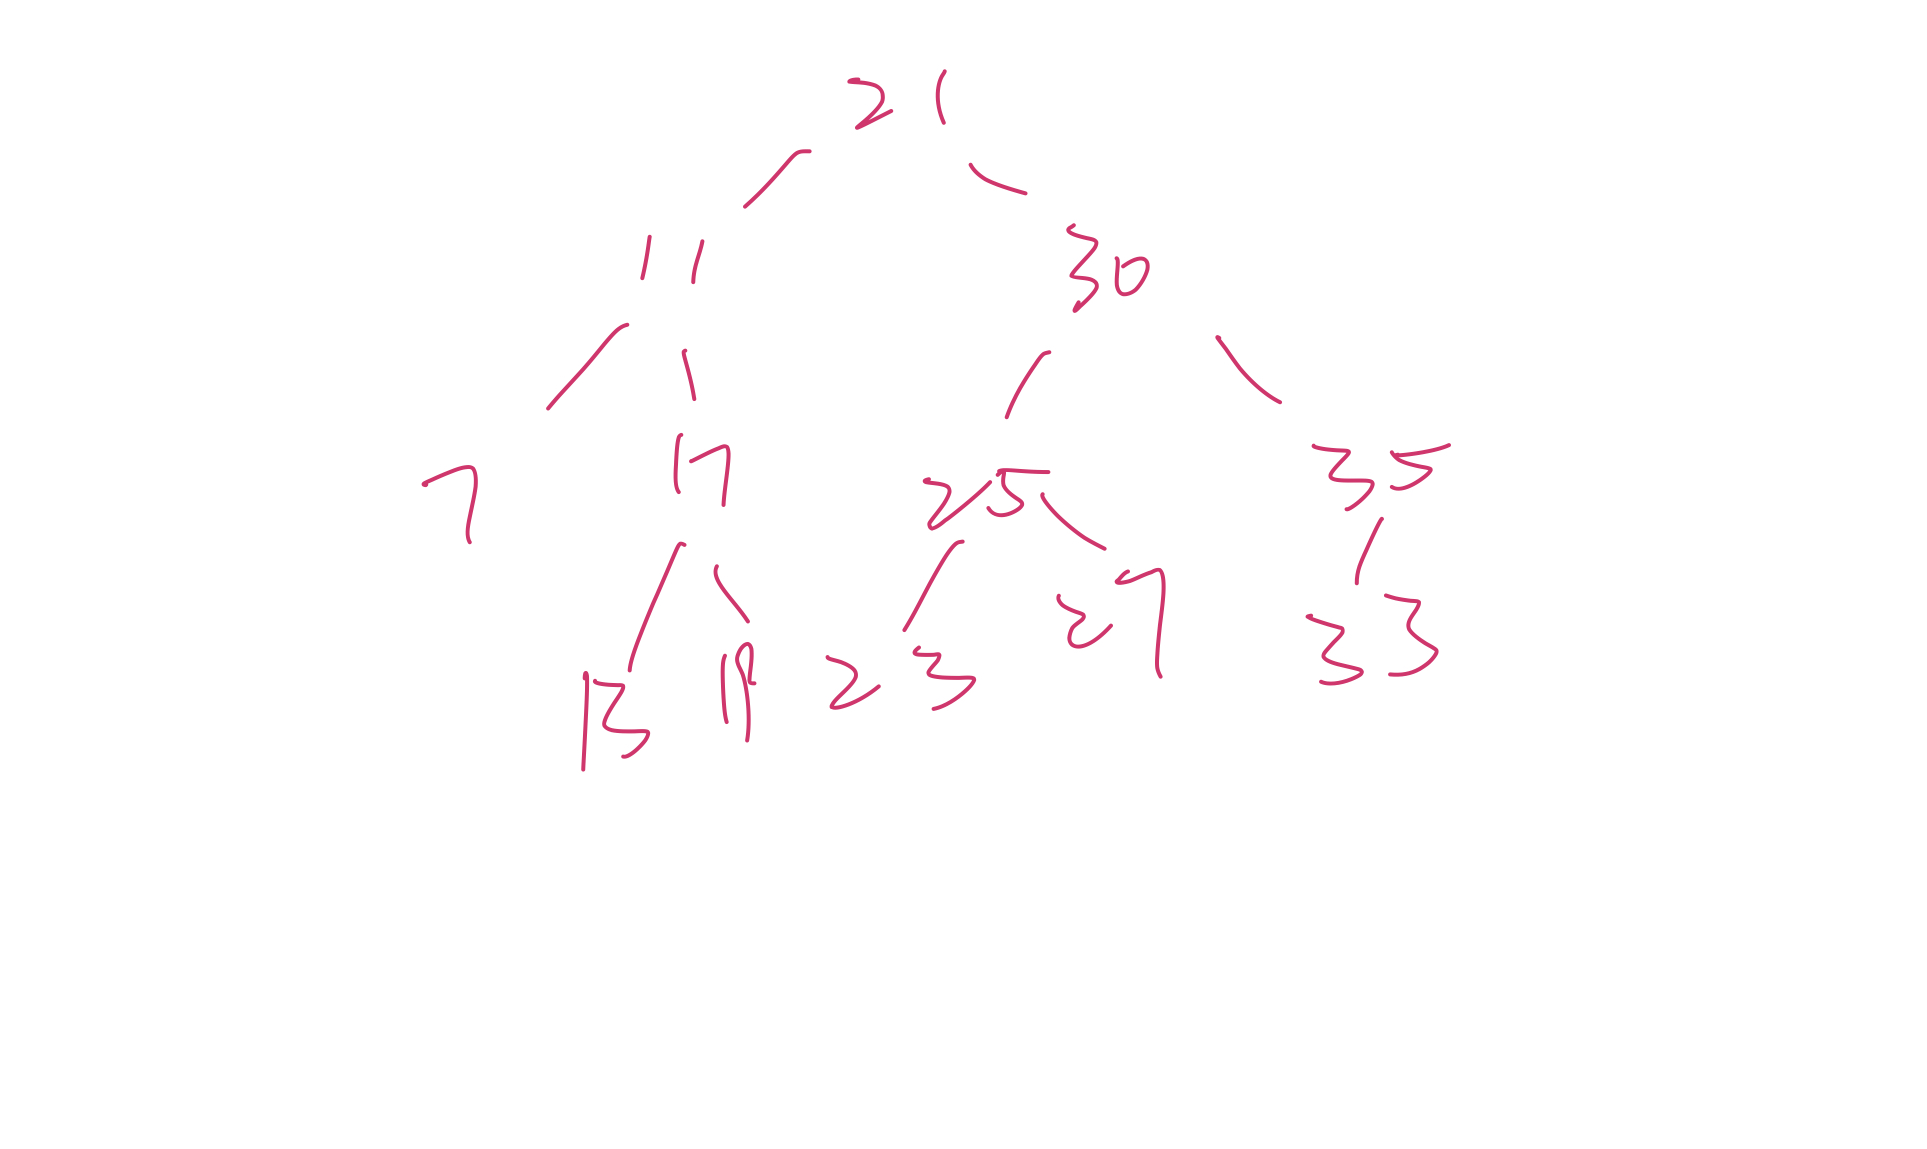 21
11 30
7 17 25 35
13 19 23 27 33